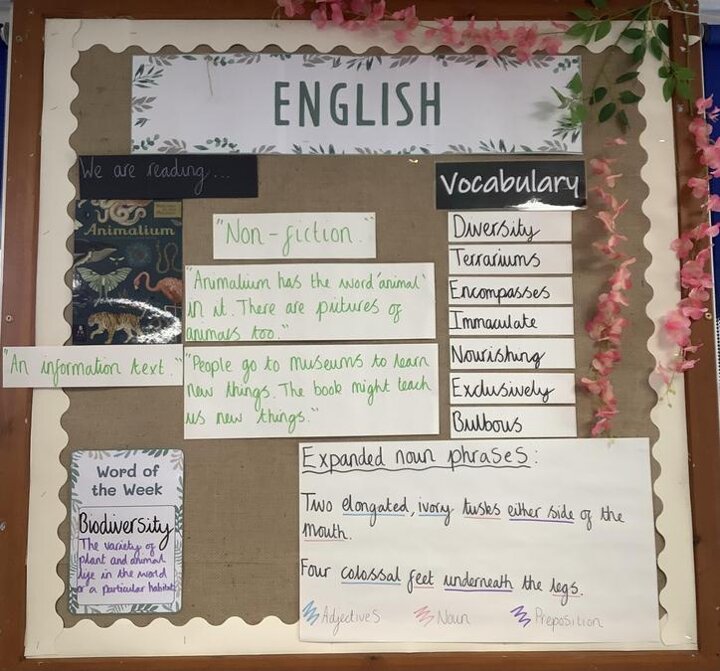 ENGLISH
We are reading...
Animalium
"An information text."
"Non-fiction."
"Animalium has the word 'animal'
in it. There are pictures of
animals too."
"People go to museums to learn
new things. The book might teach
us new things."
Vocabulary
Diversity
Terrariums
Encompasses
Immaculate
Nourishing
Exclusively
Bulbous
Word of
the Week
Biodiversity
The variety of
plant and animal
life in the world
or a particular habitat
Expanded noun phrases:
Two elongated, ivory tusks either side of the
mouth.
Four colossal feet underneath the legs.
Adjectives Noun Preposition